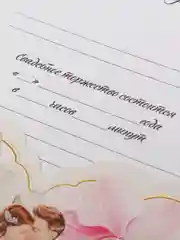 Свадебное торжество состоится
« » года
в часов минут